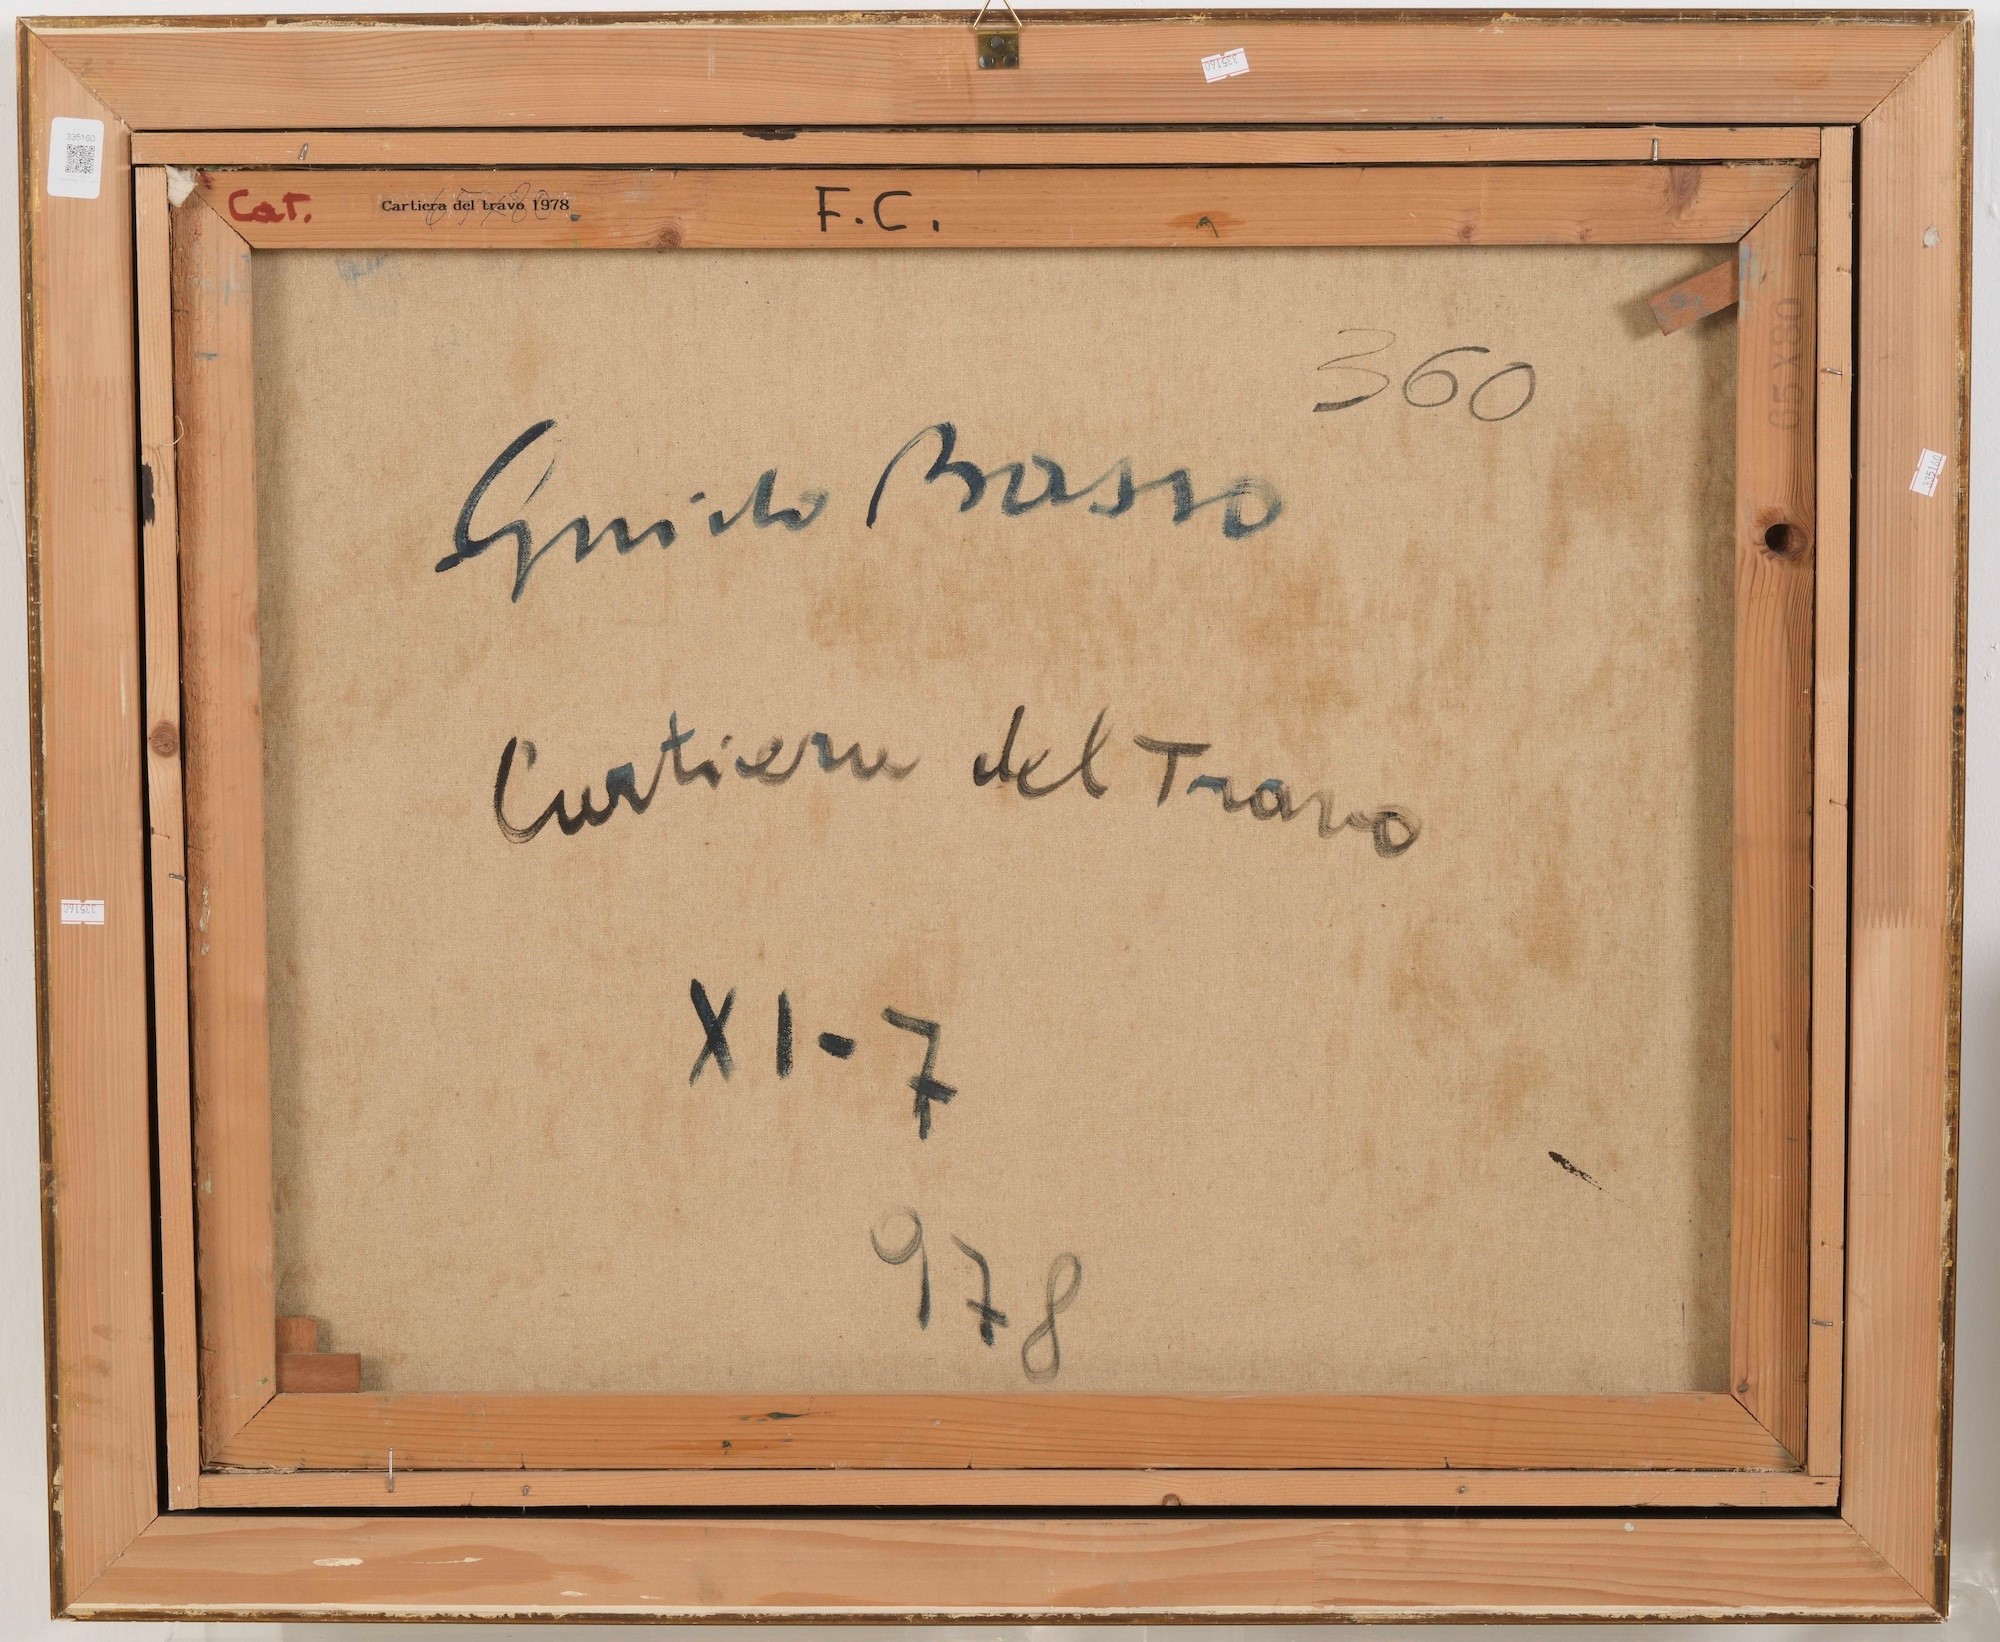 335160
335160
Cat.
Cartiera del travo 1978
65x80
F.C.
65X80
360
Guido Basso
Cartiera del Travo
335160
335160
XI-7
978